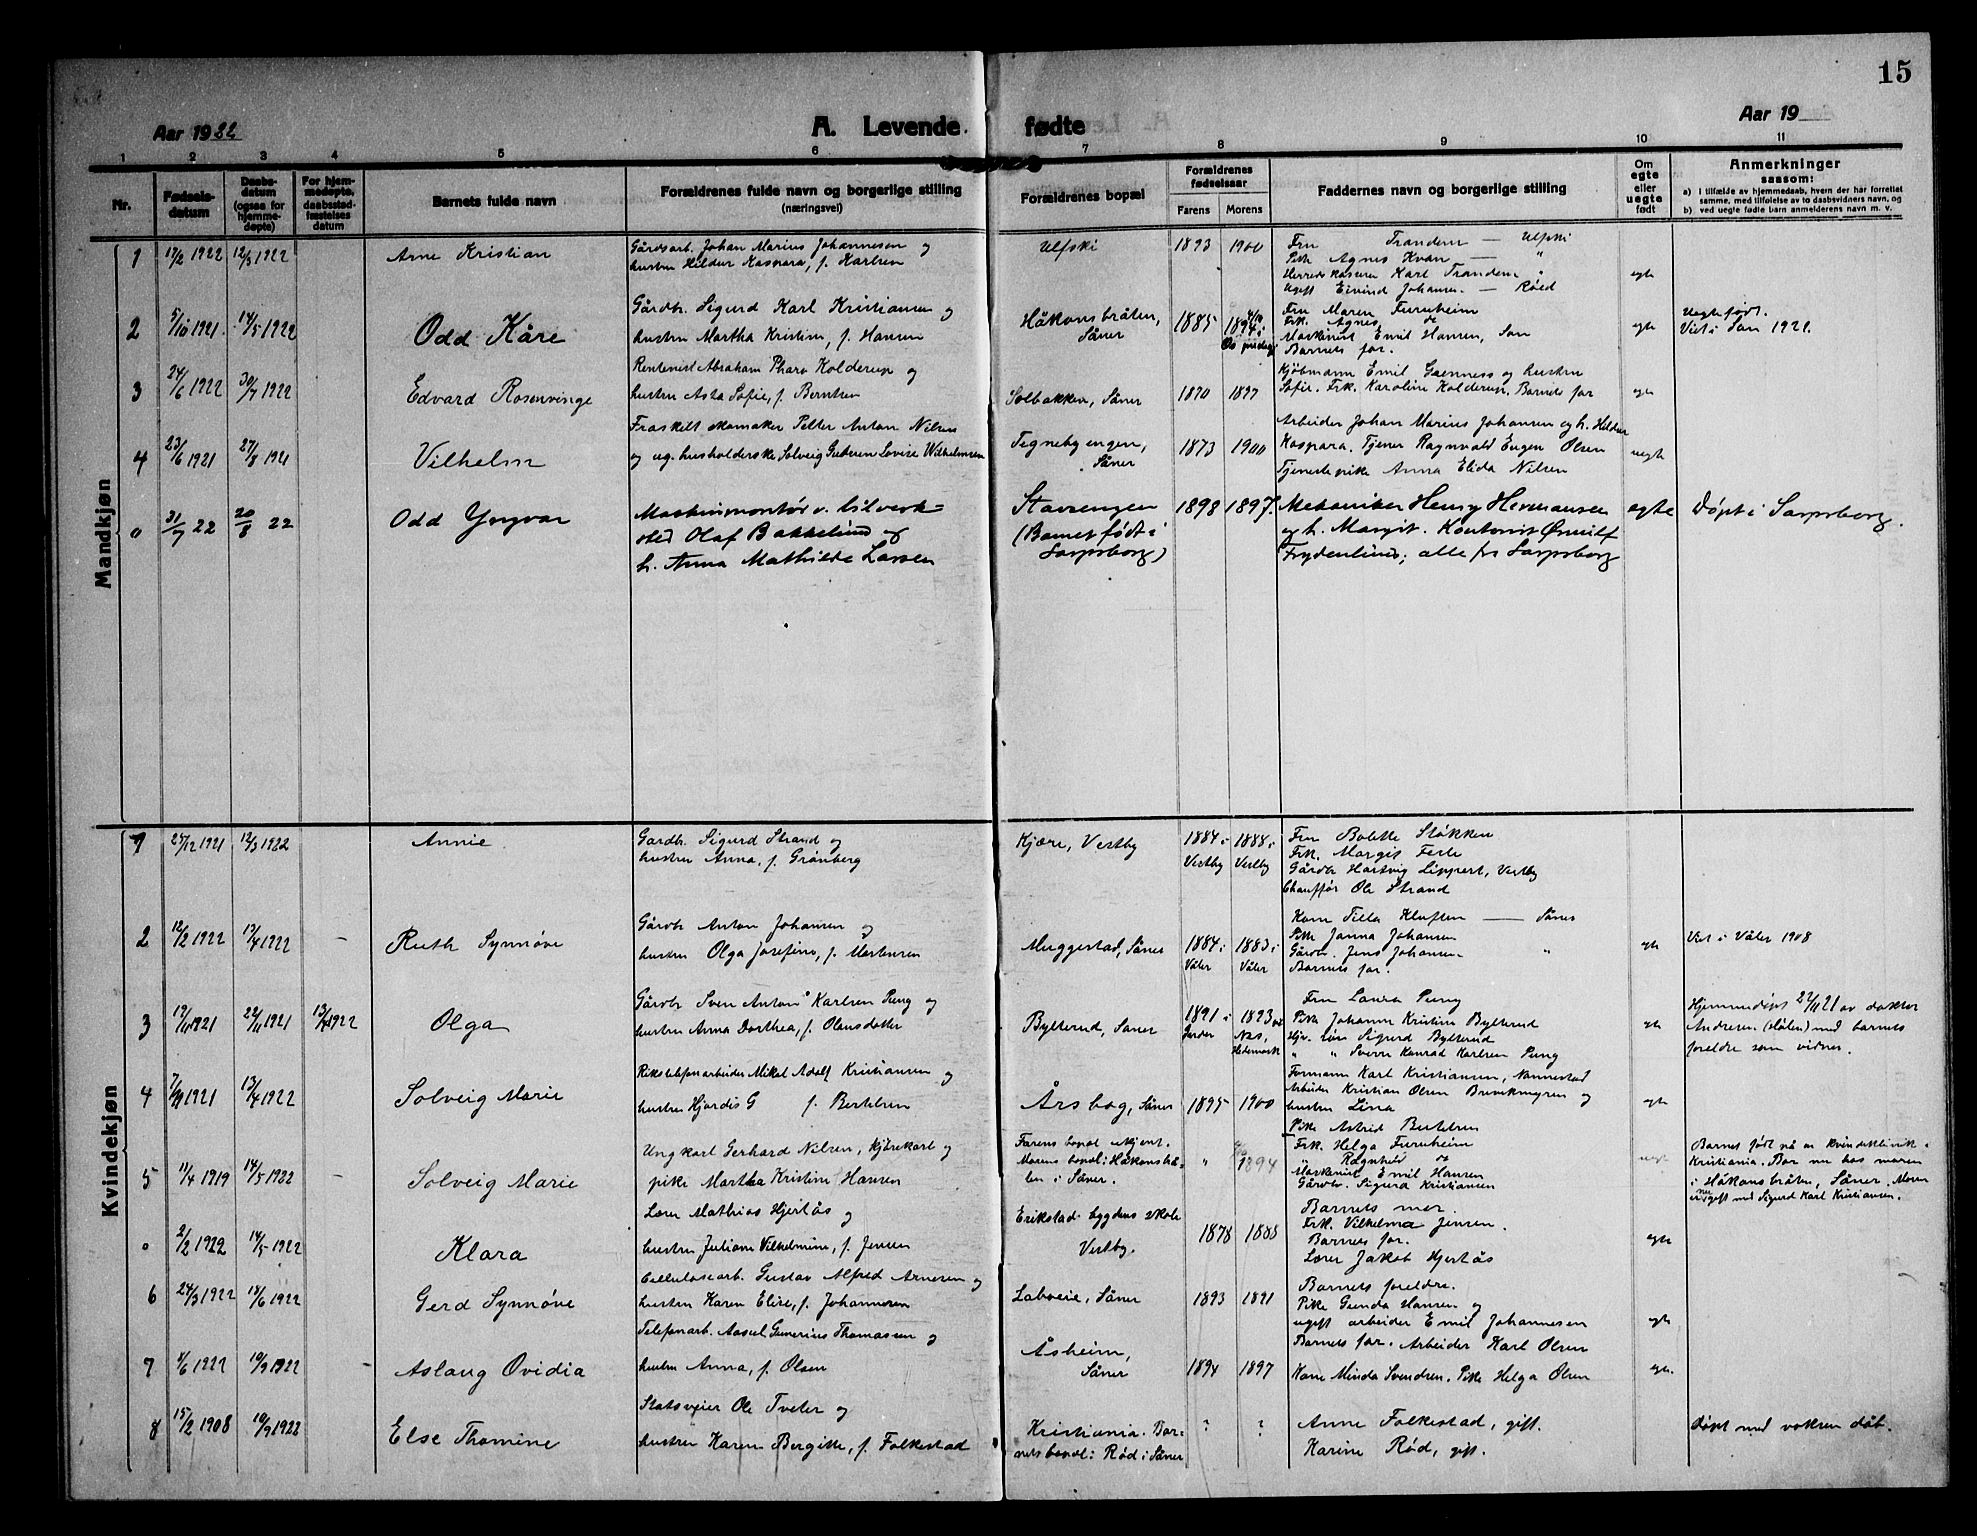 15
Aar 1922
A. Levende fødte
Aar 19
1 2 3 4 5 6 7 8 9 10 11
Nr.
Fødsels-
datum
Daabs-
datum
(ogsaa for
hjemme-
døpte)
For hjem-
medøpte,
daabsstad-
fæstelses
datum
Barnets fulde navn
Forældrenes fulde navn og borgerlige stilling
(næringsvei)
Forældrenes bopæl
Forældrenes
fødselsaar
Farens. Morens
Faddernes navn og borgerlige stilling
Om
egte
eller
uegte
født
Anmerkninger
saasom:
a) i tilfælde av hjemmedaab, hvem der har forrettet
samme, med tilføielse av to daabsvidners navn, og
b) ved uegte fødte barn anmelderens navn m. v.
Mandkjøn
1 17/2 1922 12/3 1922 Arne Kristian
Gårdsarb. Johan Marius Johannesen og
hustru Hildur Kaspara, f. Karlsen
Ulfski 1893 1900
Fru Trandem — Ulfski
Pike Agnes Kvan — "
Herredskaserer Karl Trandem "
Ugift Eivind Johansen — Røed
egte
2 5/10 1921 14/5 1922 Odd Kåre
Gårdbr. Sigurd Karl Kristiansen og
hustru Martha Kristine, f. Hansen
Håkonsbråten,
Såner
1885 1894
Fru Maren Furuheim
Frk. Agnes do
Maskinist Emil Hansen, Son
Barnets far.
egte
Uegte født.
Viet i Son 1921.
3 24/6 1922 30/7 1922 Edvard Rosenvinge
Rentenist Abraham Pharo Holderup og
hustru Asta Sofie, f. Berntsen
Solbakken, Såner 1870 1897
Kjøbmann Emil Guenness og hustru
Sofie. Frk. Karoline Holderup. Barnets far
egte
4 23/6 1921 27/8 1921 Vilhelm
Fraskilt skomaker Petter Anton Nilsen
og ug. husholderske Solveig Gudrun Lovise Wilhelmsen
Tegnebyengen,
Såner
1873 1900
Arbeider Johan Marius Johansen og h. Hildur
Kaspara. Tjener Ragnvald Eugen Olsen
Tjenestepike Anna Elida Nilsen
uegte
0 31/7 22 20/8 22 Odd Yngvar
Maskinmontør v. bilverk-
sted Olaf Bakkelund og
h. Anna Mathilde Larsen
Stavengen
(Barnet født i
Sarpsborg)
1898 1897.
Mekaniker Henry Hermansen
og h. Margit. Kontorist Ørnulf
Frydenlund; alle fra Sarpsborg
egte
Døpt i Sarpsborg.
Kvindekjøn
1 25/12 1921 12/3 1922 Annie
Gardbr. Sigurd Strand og
hustru Anna, f. Grønberg
Kjære, Vestby
1884 i
Vestby
1888 i
Vestby
Fru Bolette Støkken
Frk. Margit Ferle
Gårdbr. Hartvig Lippert, Vestby
Chauffør Ole Strand
2 12/2 1922 17/4 1922 — Ruth Synnøve
Gårdbr. Anton Johansen og
hustru Olga Josefine, f. Mortensen
Muggestad, Såner
1884 i
Våler
1883 i
Våler
Kone Tilla Kluften — Såner
Pike Janna Johansen
Gårdbr. Jens Johansen "
Barnets far.
egte
Viet i Våler 1908
3 19/11 1921 22/11 1921 13/4 1922 Olga
Gårdbr. Sven Anton Karlsen Pung og
hustru Anna Dorthea, f. Olausdatter
Bylterud, Såner
1891 i
1893
Nes,
Hedemark
Fru Laura Pung
Pike Johanne Kristine Bylterud
Hjv. søn Sigurd Bylterud
" " Sverre Konrad Karlsen Pung
egte
Hjemmedøpt 22/11 21 av doktor
Andresen (Hølen) med barnets
foreldre som vidner.
4 7/9 1921 13/4 1922 Solveig Marie
Rikstelefonarbeider Mikal Adolf Kristiansen og
hustru Hjørdis G f. Bertelsen
Årsbog, Såner 1895 1900
Formann Karl Kristiansen, Nannestad
Arbeider Kristian Olsen Brevikmyren og
hustru Lina
Pike Astrid Bertelsen
egte
5 11/4 1919 14/5 1922 — Solveig Marie
Ungkarl Gerhard Nilsen, kjørekarl og
pike Martha Kristine Hansen
Farens bopæl ukjent.
Morens bopæl: Håkonsbrå-
ten i Såner.
" 1894
Frk. Helga Furuheim
" Ragnhild do
Maskinist Emil Hansen
Gårdbr. Sigurd Kristiansen
uegte
Barnet født på en kvindeklinik i
Kristiania. Bor nu hos moren
i Håkonsbråten, Såner. Moren
er nu gift med Sigurd Karl Kristiansen.
0 2/2 1922 14/5 1922 Klara
Lærer Mathias Hjertås og
hustru Juliane Vilhelmine, f. Jensen
Erikstad-bygdens skole
Vestby.
1878 1888
Barnets mor.
Frk. Vilhelma Jensen.
Barnets far.
Lærer Jakob Hjertås
egte
6 24/3 1922 18/6 1922 Gerd Synnøve
Cellulosearb. Gustav Alfred Arnesen og
hustru Karen Elise, f. Johannesen
Labveie, Såner 1893 1891
Barnets foreldre.
Pike Gunda Hansen og
ugift arbeider Emil Johannesen
egte
7 4/6 1922 10/9 1922 — Aslaug Ovidia
Telefonarb. Aasul Gunerius Thomassen og
hustru Anna, f. Olsen
Åsheim,
Såner
1894 1897
Barnets far. Arbeider Karl Olsen
Kone Minda Svendsen. Pike Helga Olsen
egte.
8 15/2 1908 10/9 1922 Else Thomine
Statsveier Ole Tveter og
hustru Karen Bergitte, f. Folkestad
Kristiania. Bar-
nets bopæl: Rød i Såner
? ?
Anne Folkestad, gift.
Karine Rød, gift.
Døpt med voksen dåb.